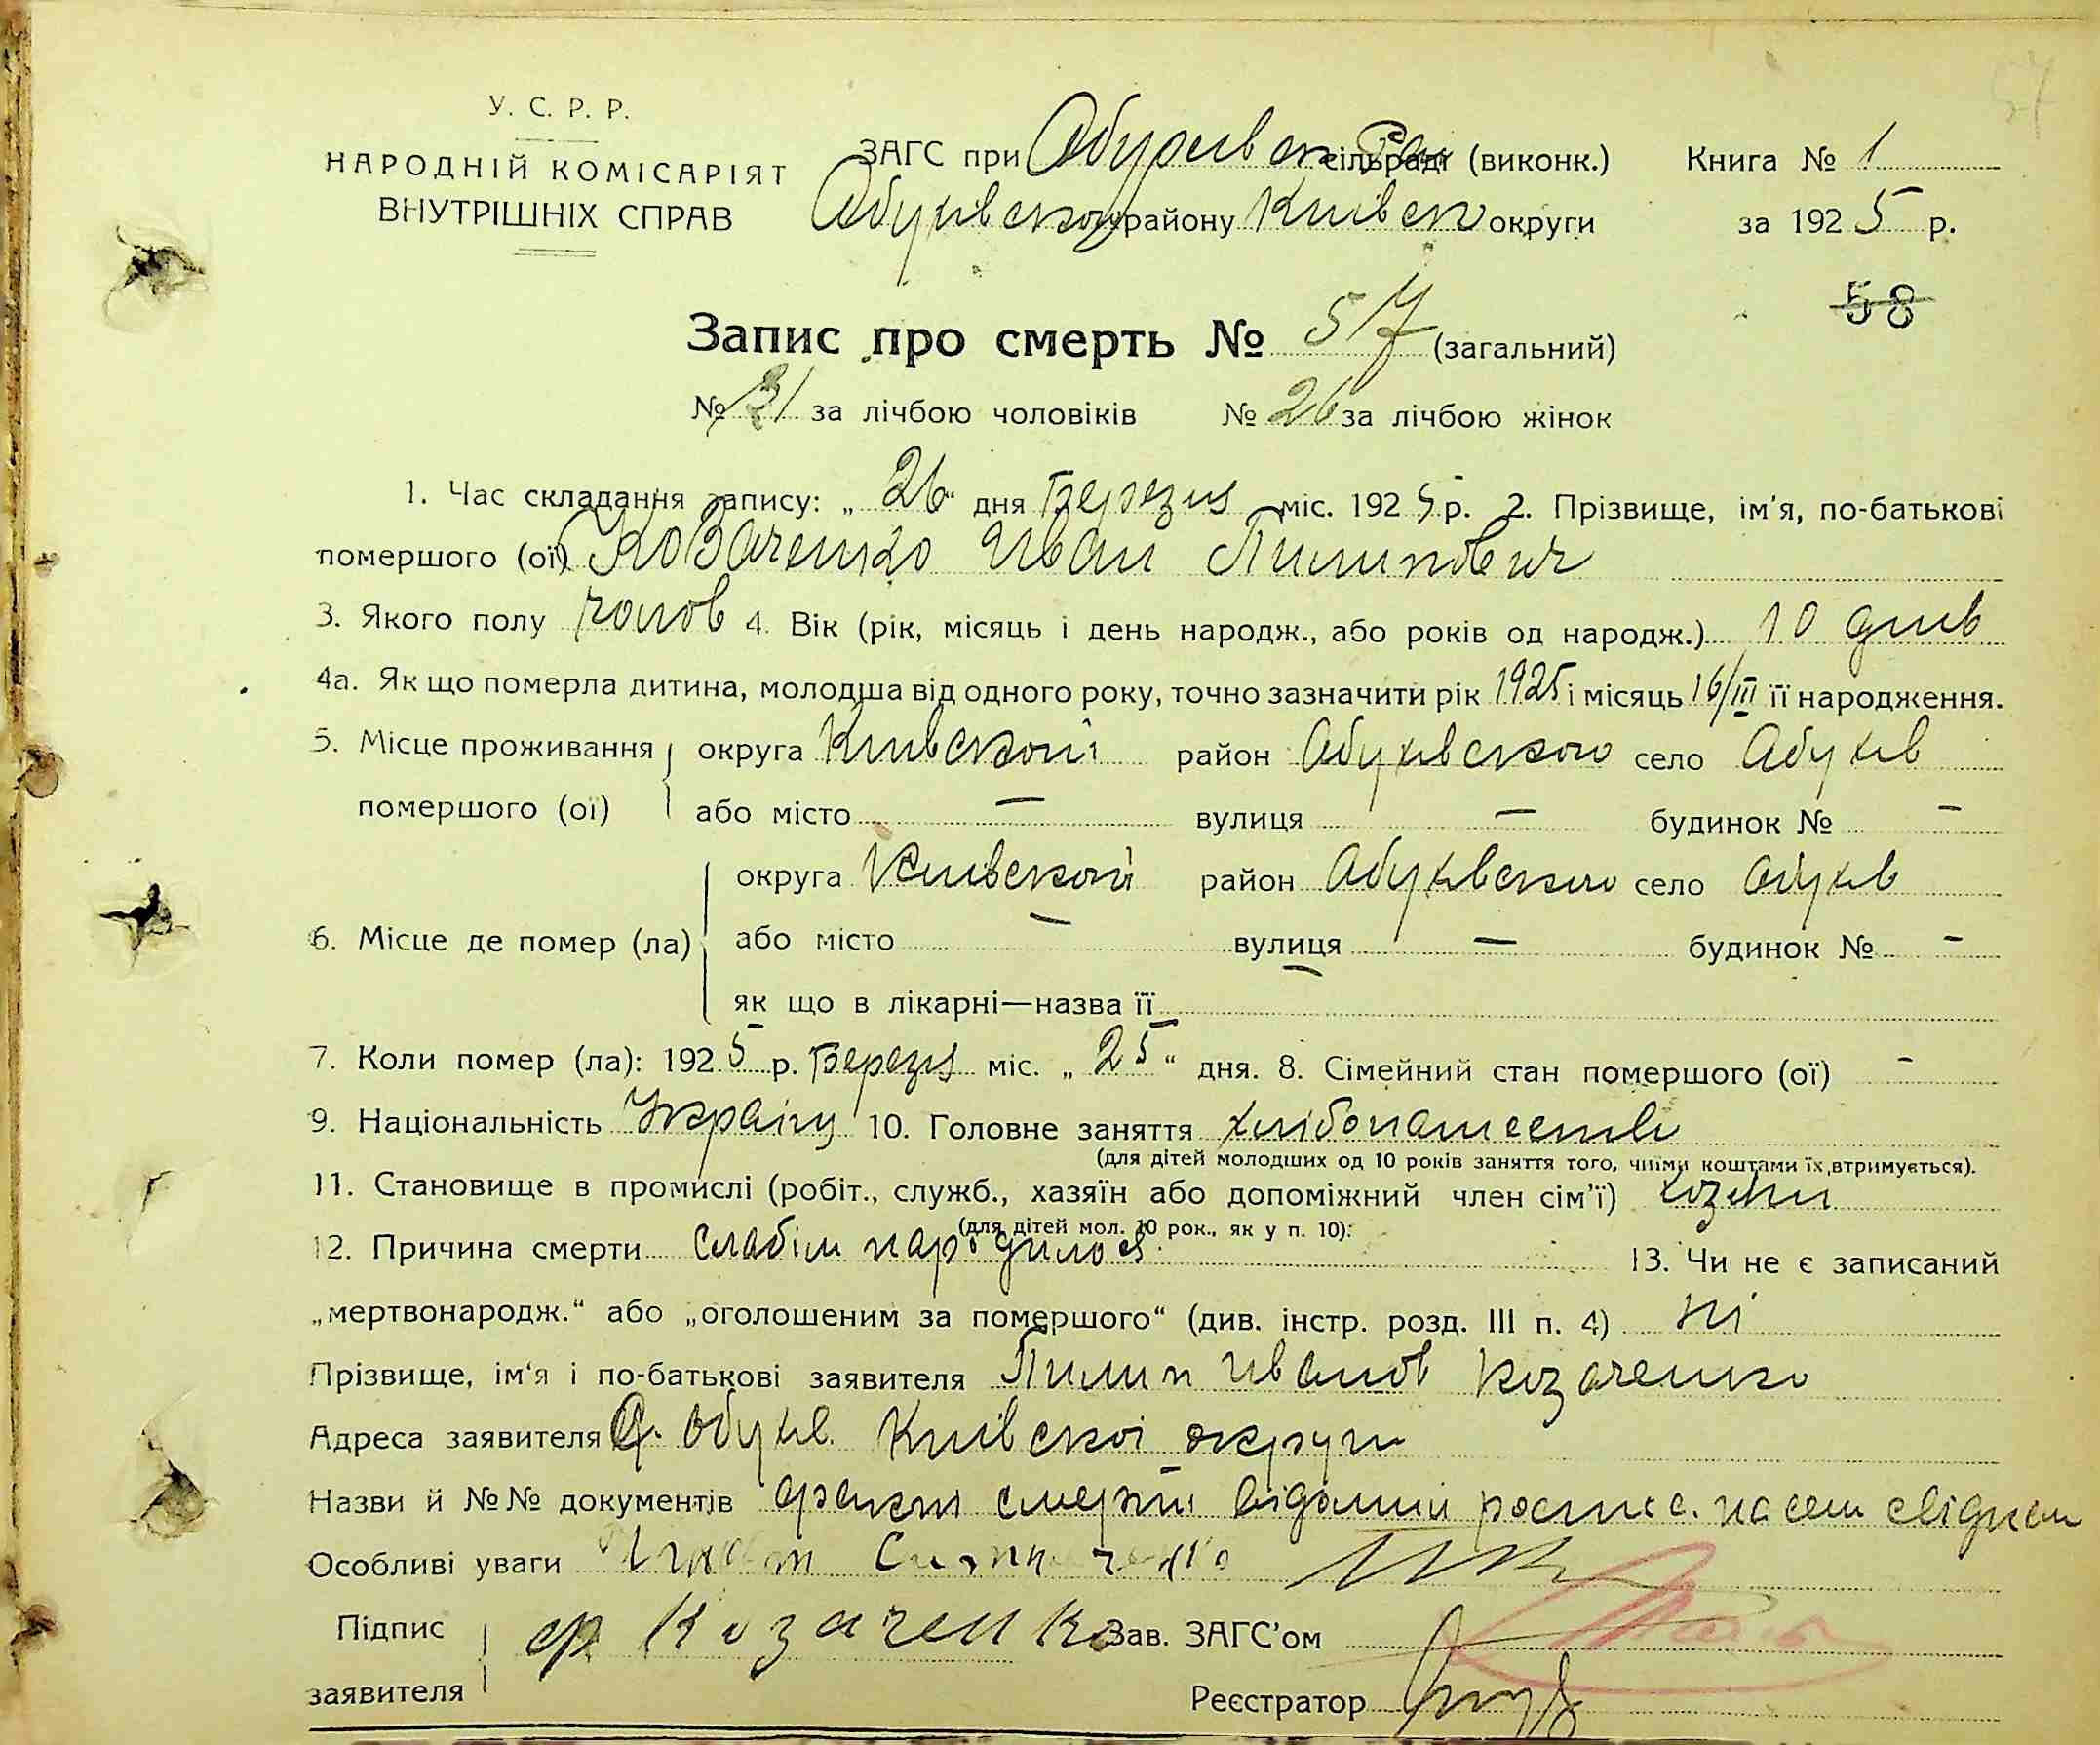 У. С. Р. Р.
НАРОДНІЙ КОМІСАРІЯТ
ВНУТРІШНІХ СПРАВ
ЗАГС при сільраді (виконк.)
району Київск округи
Книга № 1
за 1925 р.
57
58
Запис про смерть № 57 (загальний)
№ 31 за лічбою чоловіків № 26 за лічбою жінок
1. Час складання запису: „26“ дня Березня міс. 1925 р. 2. Прізвище, ім'я, по-батькові
помершого (ої) Козаченко Иван Пилипович
3. Якого полу чолов 4. Вік (рік, місяць і день народж., або років од народж.) 10 днів
4а. Як що померла дитина, молодша від одного року, точно зазначити рік 1925 і місяць 16/III її народження.
5. Місце проживання помершого (ої) округа Київскої район Абухівского село Абухів
або місто — вулиця — будинок № —
6. Місце де помер (ла) округа Київскої район Абухівского село Абухів
або місто — вулиця — будинок № —
як що в лікарні—назва її —
7. Коли помер (ла): 1925 р. Березня міс. „25“ дня. 8. Сімейний стан помершого (ої) —
9. Національність Україну 10. Головне заняття хлібопашество
(для дітей молодших од 10 років заняття того, чиїми коштами їх втримується).
11. Становище в промислі (робіт., служб., хазяїн або допоміжний член сім'ї) хозяїн
(для дітей мол. 10 рок., як у п. 10):
12. Причина смерти слабім народився 13. Чи не є записаний
„мертвонародж.“ або „оголошеним за помершого“ (див. інстр. розд. III п. 4) ні
Прізвище, ім'я і по-батькові заявителя Пилип Иванов Козаченко
Адреса заявителя с. Обухів Київскої округи
Назви й №№ документів факт смерти відомий
Особливі уваги
Підпис заявителя Козаченко Зав. ЗАГС'ом
Реєстратор